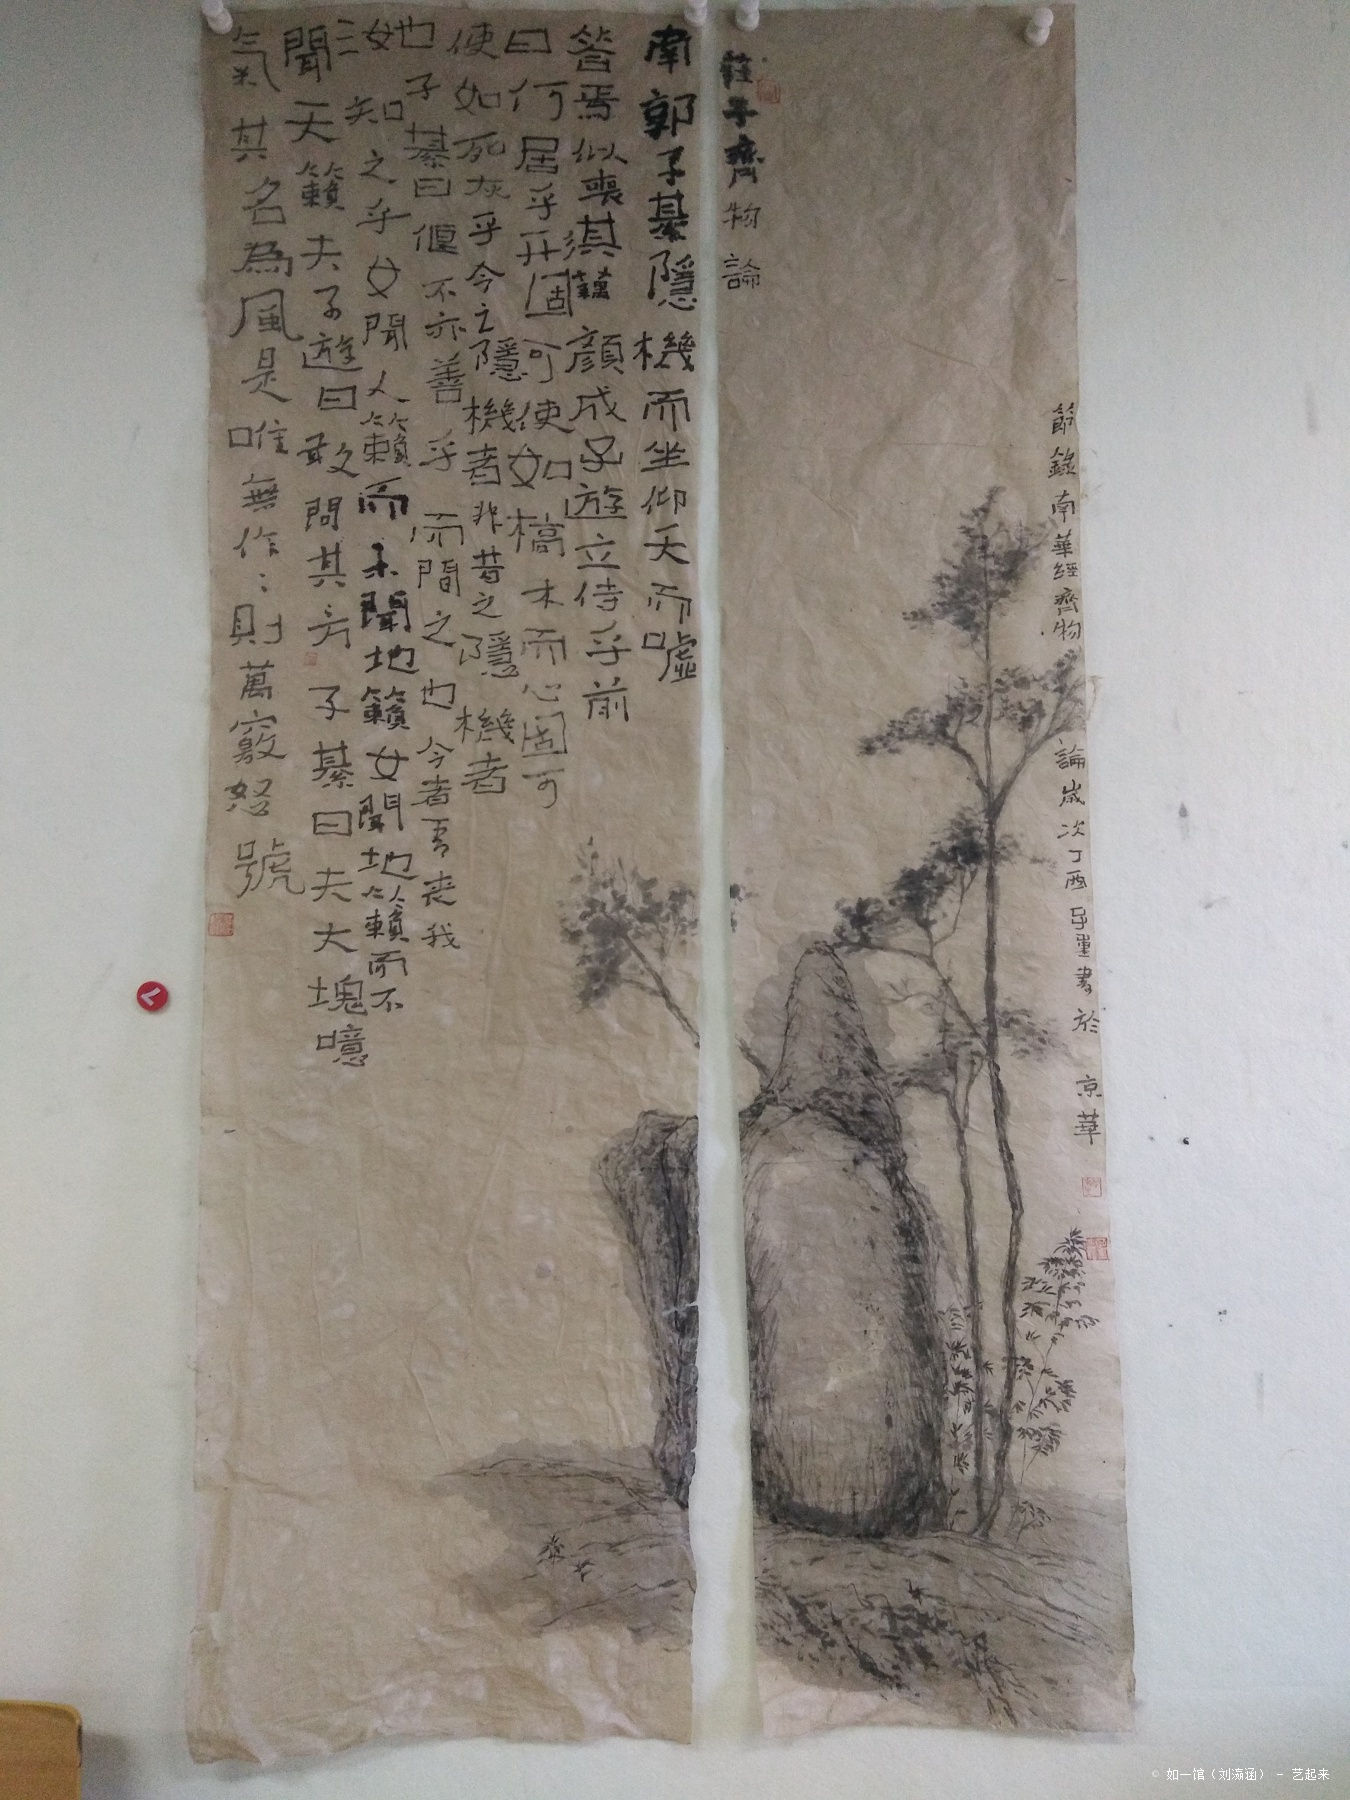 莊子齊物論
南郭子綦隱機而坐仰天而噓
荅焉似喪其耦顏成子遊立侍乎前
曰何居乎形固可使如槁木而心固可
使如死灰乎今之隱機者非昔之隱機者
也子綦曰偃不亦善乎而問之也今者吾丧我
汝知之乎女聞人籟而未聞地籟女聞地籟而不
聞天籟夫子遊曰敢問其方子綦曰夫大塊噫
氣其名為風是唯無作:則萬竅怒號
節錄南華經齊物
論歲次丁酉子重書於
京華
© 如一馆（刘瀛涵） - 艺起来